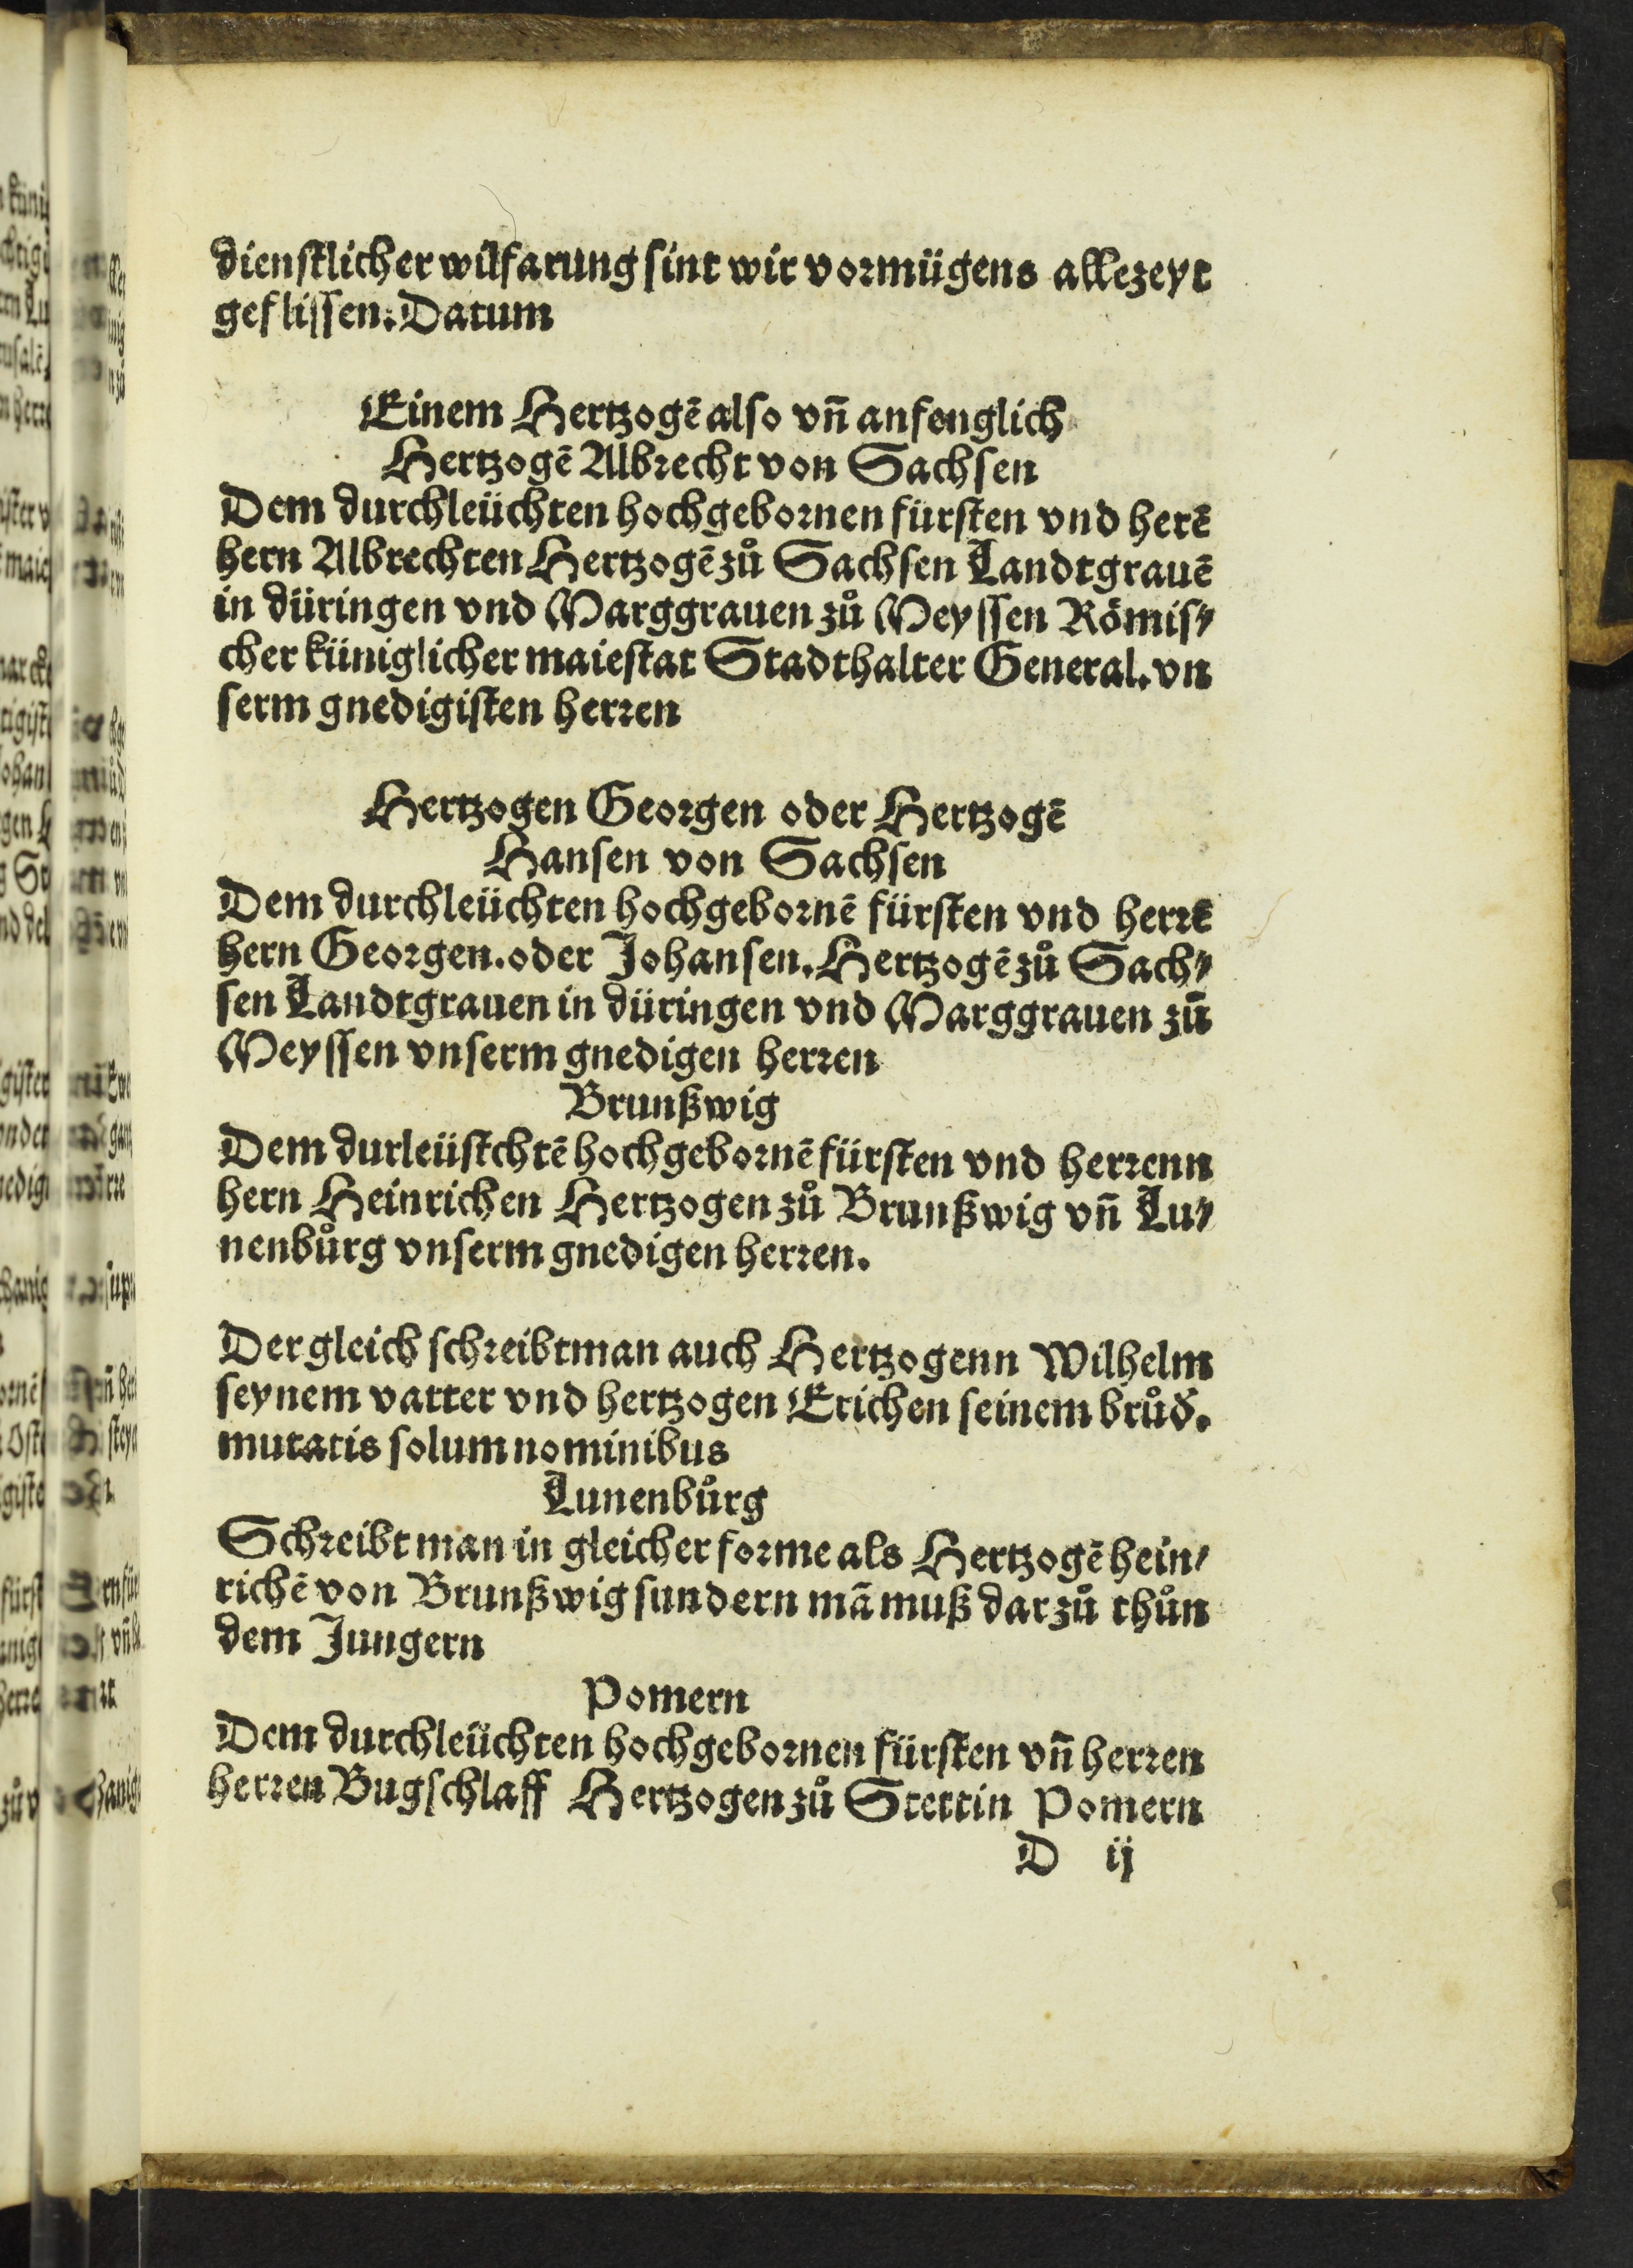 dienstlicher wilfarung sint wir vormügens allezeyt
geflissen. Datum
Einem Hertzogē also vn̄ anfenglich
Hertzogē Albrecht von Sachsen
Dem durchleüchten hochgebornen fürsten vnd herē
hern Albrechten Hertzogē zů Sachsen Landtgrauē
in düringen vnd Marggrauen zů Meyssen Römis⸗
cher küniglicher maiestat Stadthalter General. vn
serm gnedigisten herren
Hertzogen Georgen oder Hertzogē
Hansen von Sachsen
Dem durchleüchten hochgebornē fürsten vnd herrē
hern Georgen. oder Johansen. Hertzogē zů Sach⸗
sen Landtgrauen in düringen vnd Marggrauen zū
Meyssen vnserm gnedigen herren
Brunßwig
Dem durleüstchtē hochgebornē fürsten vnd herrenn
hern Heinrichen Hertzogen zů Brunßwig vn̄ Lu⸗
nenbůrg vnserm gnedigen herren.
Der gleich schreibt man auch Hertzogenn Wilhelm
seynem vatter vnd hertzogen Erichen seinem brůd̓.
mutatis solum nominibus
Lunenbůrg
Schreibt man in gleicher forme als Hertzogē hein⸗
richē von Brunßwig sundern mā muß dar zů thůn
dem Jungern
Pomern
Dem durchleüchten hochgebornen fürsten vn̄ herren
herren Bugschlaff Hertzogen zů Stettin Pomern
D ij